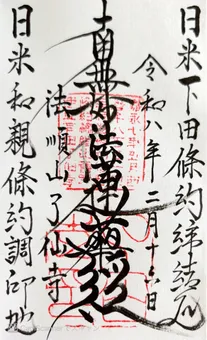 日米下田條約締結
令和八年二月十六日
南無妙法蓮華経
法順山了仙寺
日米和親條約調印地